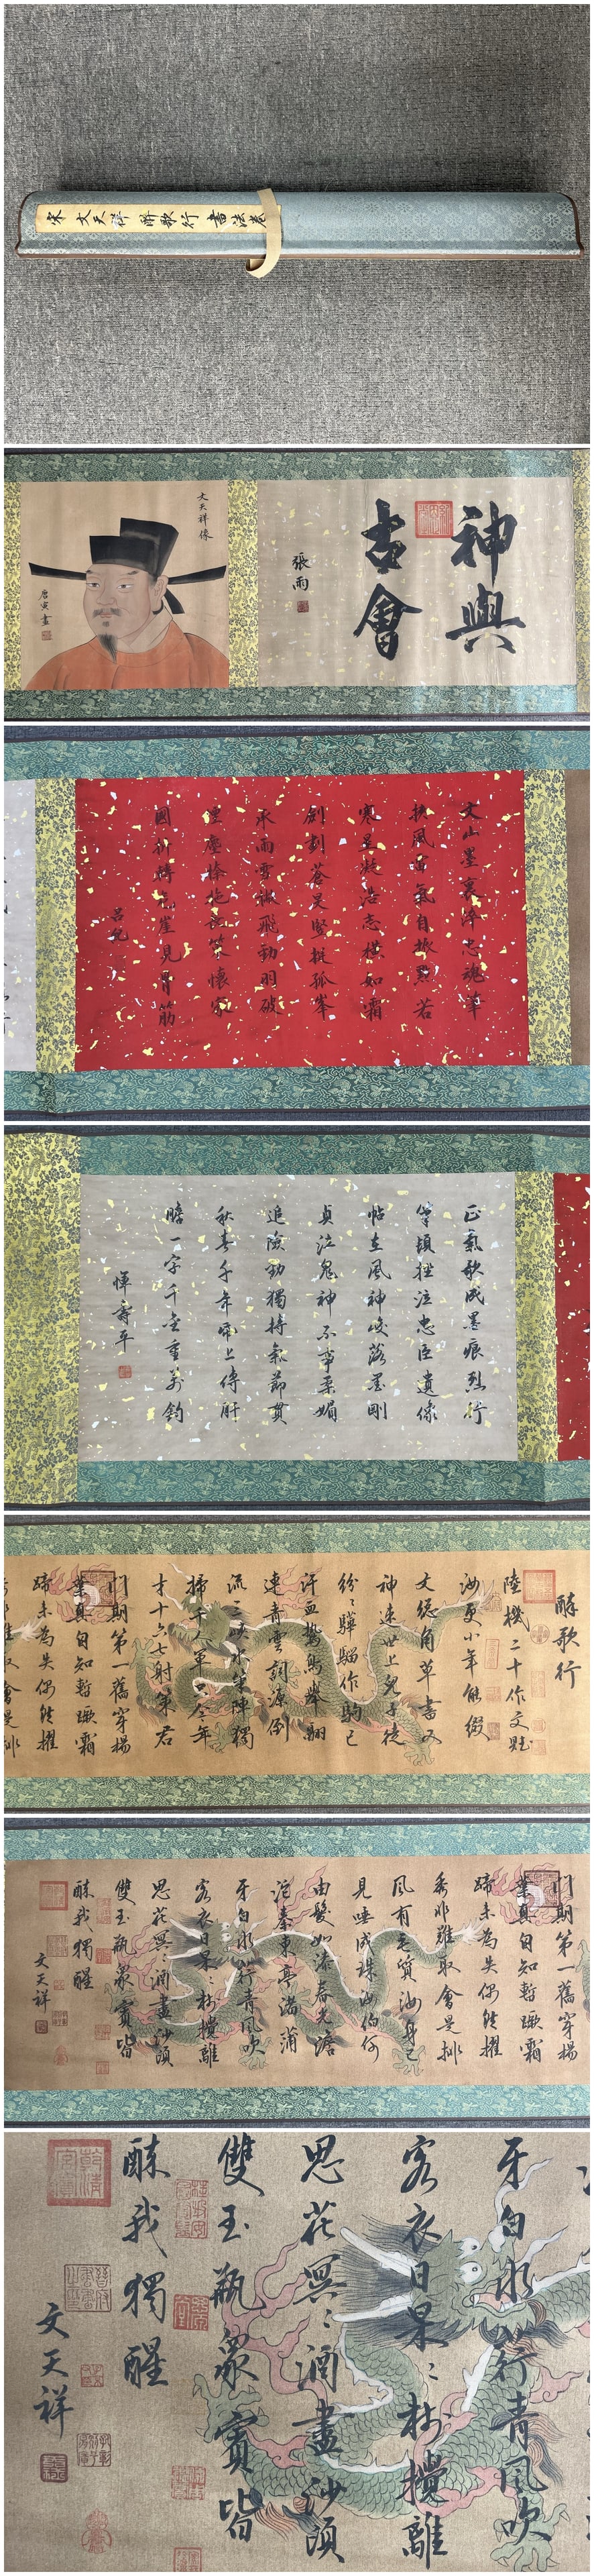 宋 文天祥 醉歌行 書法卷
神與
古會
張雨
文天祥像
唐寅畫
文山墨裏浄忠魂筆
扶風雲氣自振烈若
寒星凝浩志橫如霜
劍割蒼旻豎挺孤峯
承雨雪撇飛動羽破
煙塵捺拖詔策懷家
國折轉危崖見骨筋
正氣歌成墨痕烈行
筆頓挫泣忠臣遺像
帖立風神峻落墨剛
貞泣鬼神不爭柔媚
追險勁獨持氣節貫
秋春千年帋上傳肝
膽一字千金重萬鈞
惲壽平
醉歌行
陸機二十作文賦
汝更小年能綴
文總角草書又
神速世上兒子徒
紛〻驊騮作駒已
汗血鷙鳥舉翮
連青雲詞源倒
流三峽水筆陣獨
掃千人軍只今年
才十六七射策君
門期第一舊穿楊
葉真自知暫蹶霜
蹄未為失偶然擢
秀非難取會是排
門期第一舊穿楊
葉真自知暫蹶霜
蹄未為失偶然擢
秀非難取會是排
風有毛質汝身已
見唾成珠汝伯何
由髮如漆春光澹
沱秦東亭渚蒲
牙白水荇青風吹
客衣日杲〻樹攪離
思花冥〻酒盡沙頭
雙玉瓶眾賓皆
醉我獨醒
文天祥
牙白水荇青風吹
客衣日杲〻樹攪離
思花冥〻酒盡沙頭
雙玉瓶眾賓皆
醉我獨醒
文天祥